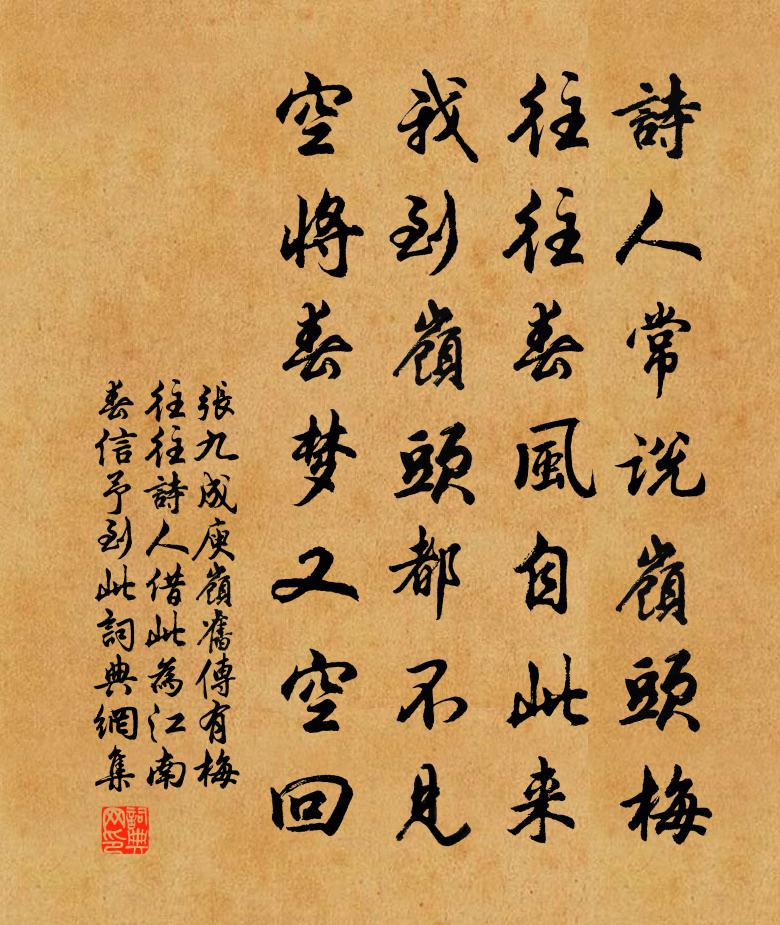 詩人常说嶺頭梅
往往春風自此来
我到嶺頭都不見
空將春梦又空回
張九成庾嶺舊傳有梅
往往詩人借此為江南
春信予到此詞典網集
詞典
网印